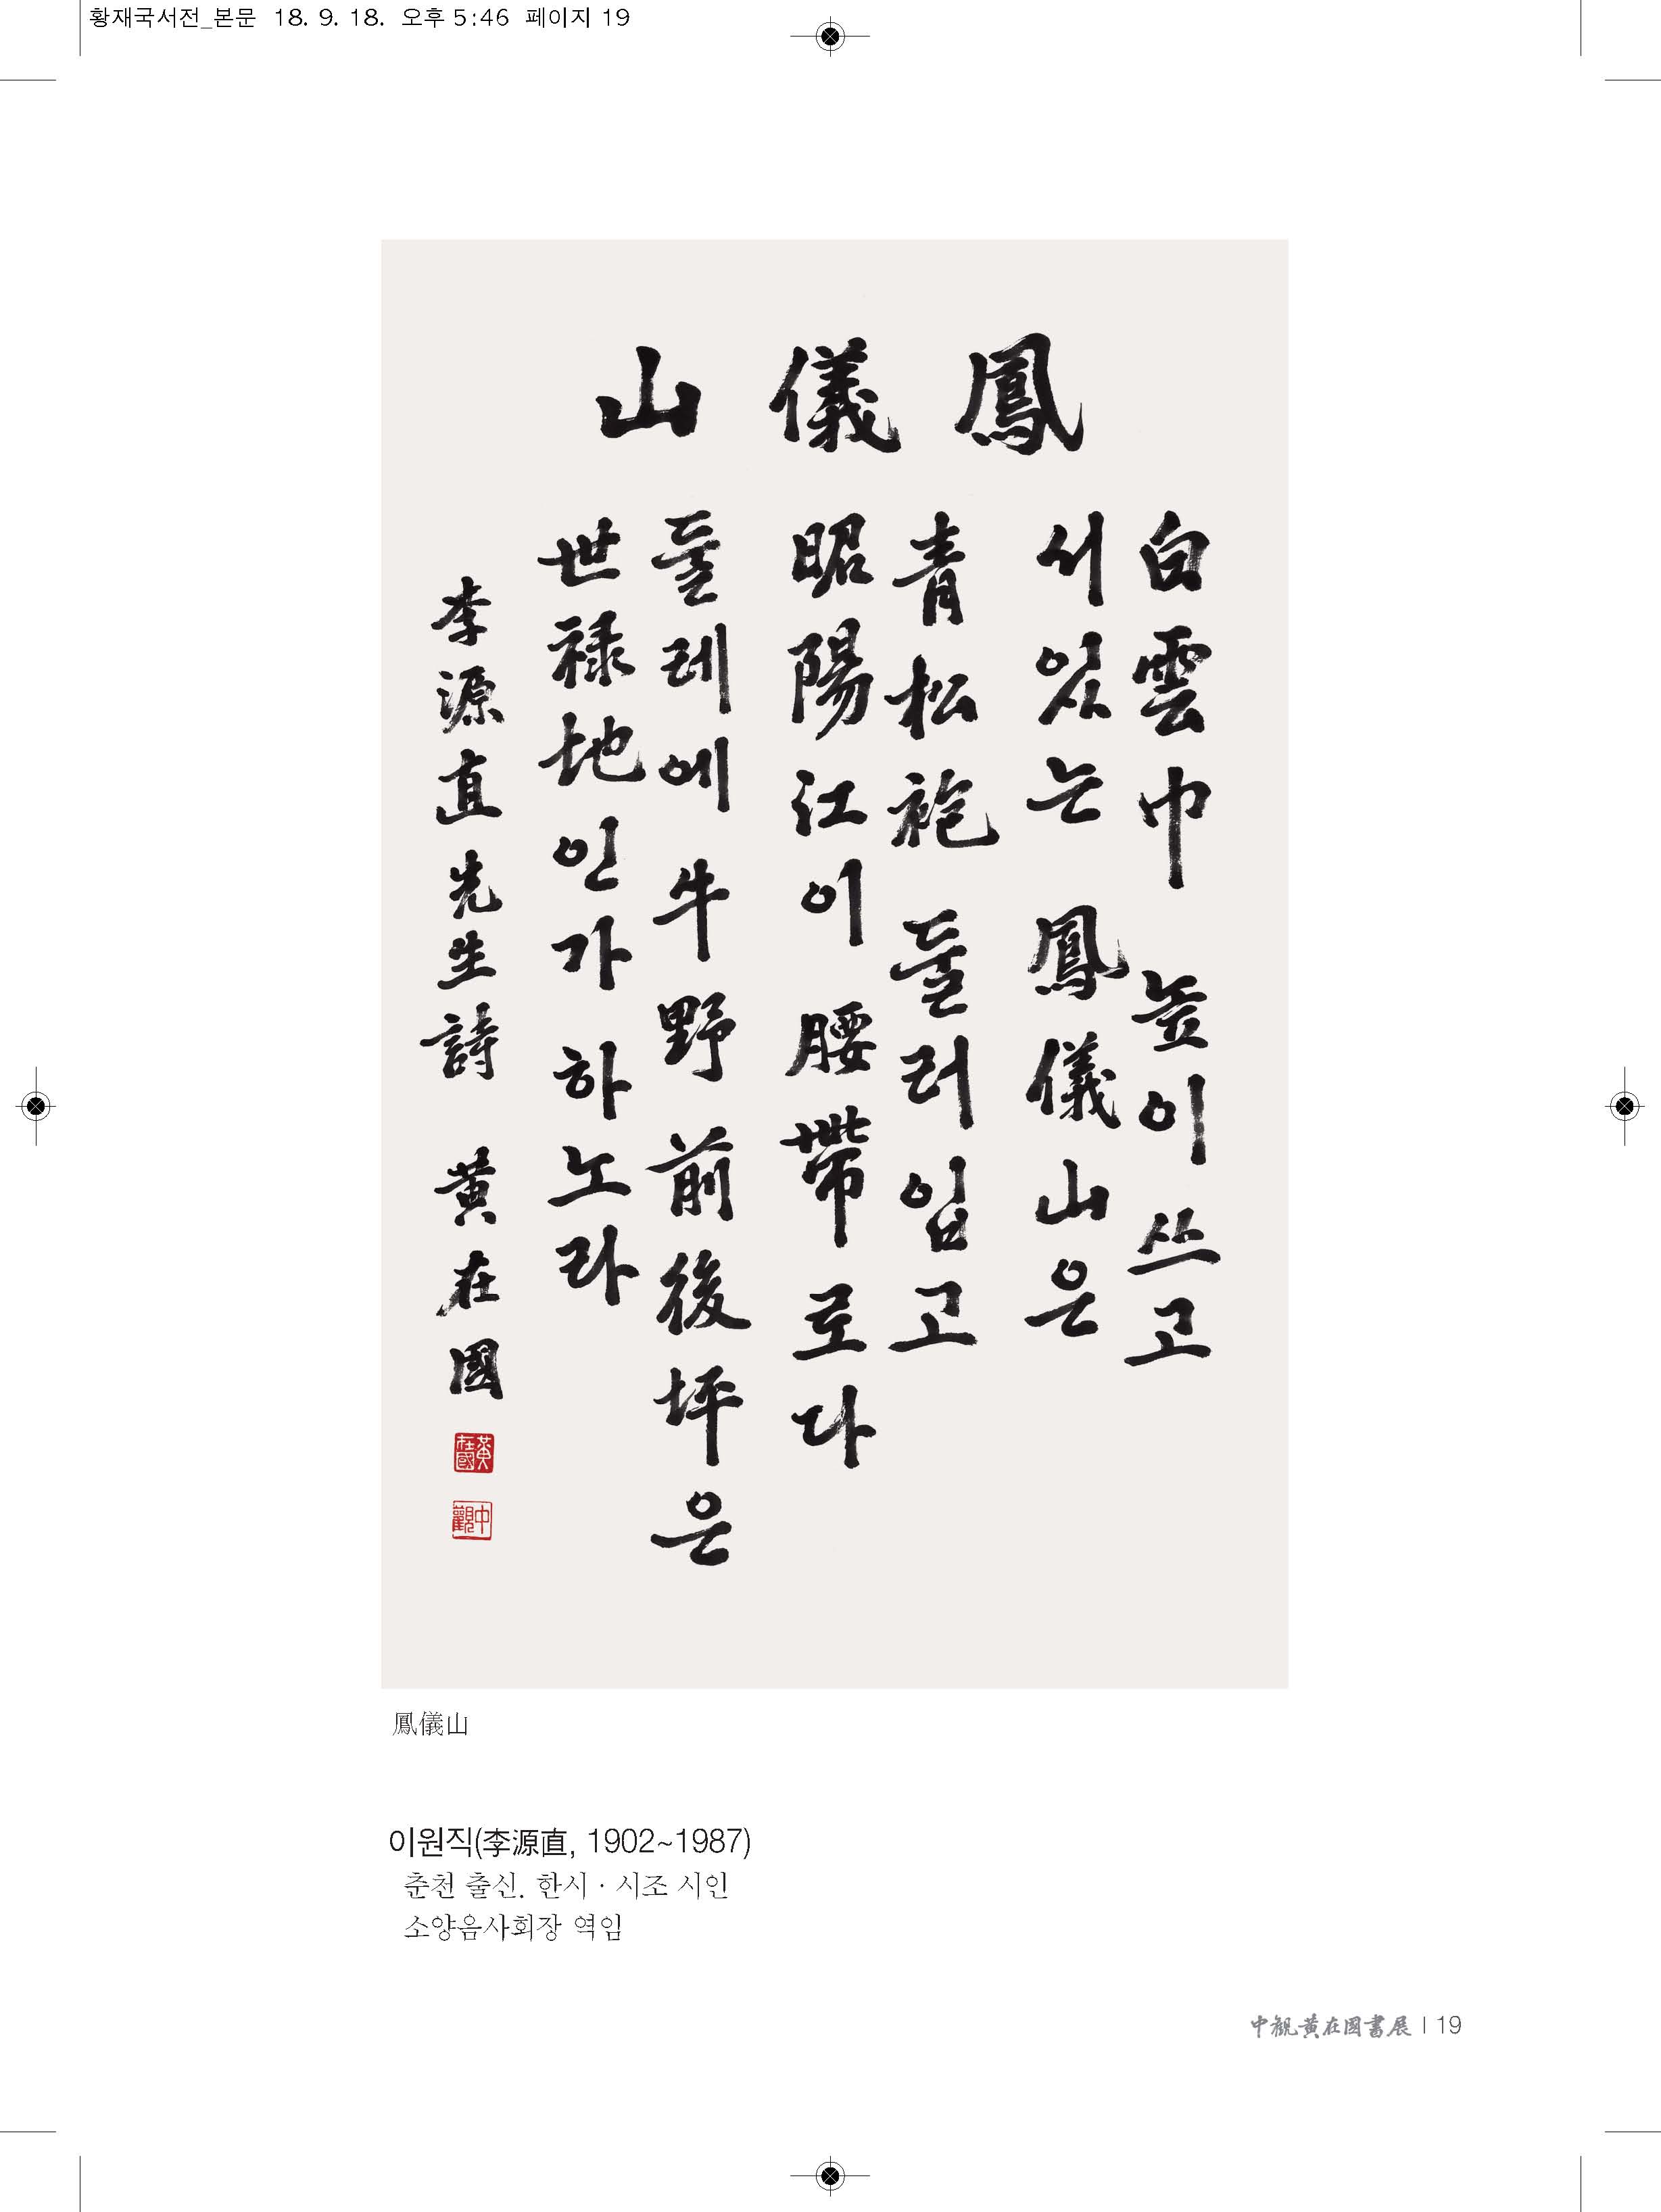 황재국서전_본문 18. 9. 18. 오후 5:46 페이지 19
鳳儀山
白雲巾 높이 쓰고
서있는 鳳儀山은
青松袍 둘러입고
昭陽江이 腰帶로다
둘레에 牛野 前後坪은
世祿地인가 하노라
李源直先生詩 黃在國
黃在國
中觀
鳳儀山
이원직(李源直, 1902~1987)
춘천 출신. 한시 · 시조 시인
소양음사회장 역임
中観黃在國書展 | 19